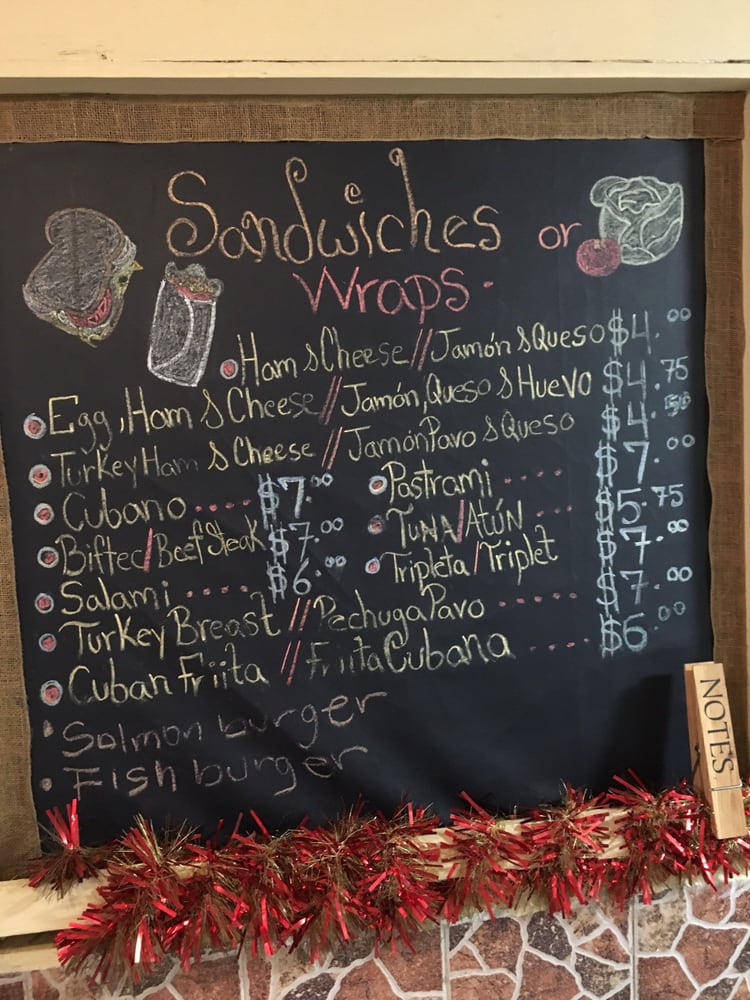 Sandwiches or
Wraps.
Ham & Cheese // Jamón & Queso $4.00
Egg, Ham & Cheese // Jamón, Queso & Huevo $4.75
Turkey Ham & Cheese // Jamón Pavo & Queso $4.50
Cubano ..... $7.00 Pastrami ..... $7.00
Biftec/Beef Steak $7.00 Tuna/Atún ... $5.75
Salami ..... $6.00 Tripleta/Triplet $7.00
Turkey Breast // Pechuga Pavo ..... $7.00
Cuban Friita // Friita Cubana ..... $6.00
Salmon burger
Fish burger
NOTES